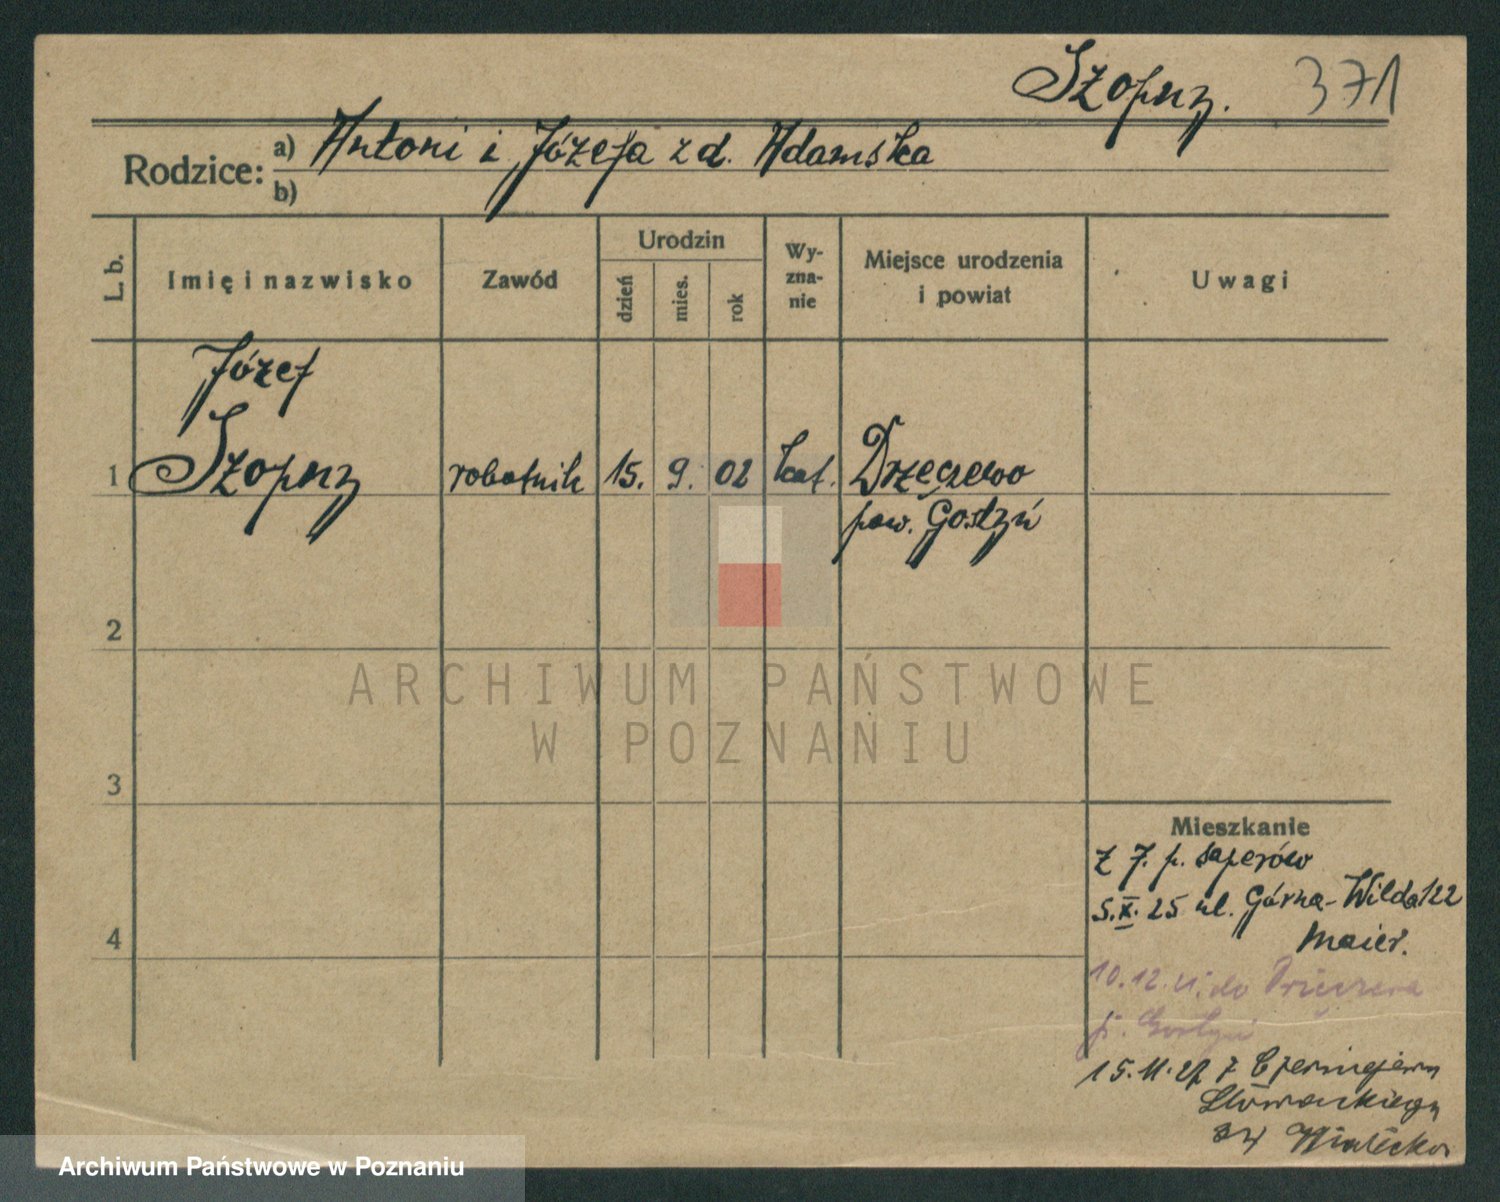 Szopny. 371
Rodzice: a) Antoni i Józefa z d. Adamska
b)
L. b. Imię i nazwisko Zawód Urodzin dzień mies. rok Wy-zna-nie Miejsce urodzenia i powiat Uwagi
Józef
1 Szopny robotnik 15. 9. 02 kat. Drzęczewo
pow. Gostyń
2
ARCHIWUM PAŃSTWOWE
W POZNANIU
3
Mieszkanie
z 7. p. saperów
5.X.25 ul. Górna-Wilda 122
4
Maier.
10.12. do
p. Gostyń
15.11.27 z
Słowackiego
Archiwum Państwowe w Poznaniu